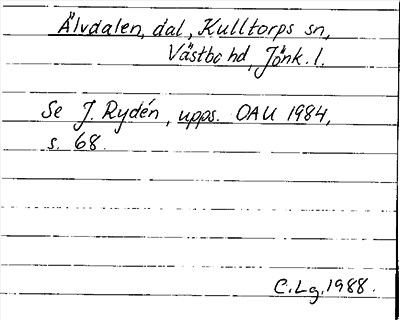 Älvdalen, dal, Kulltorps sn,
Västbo hd, Jönk. l.
Se J. Rydén, upps. OAU 1984,
s. 68.
C.Lg. 1988.